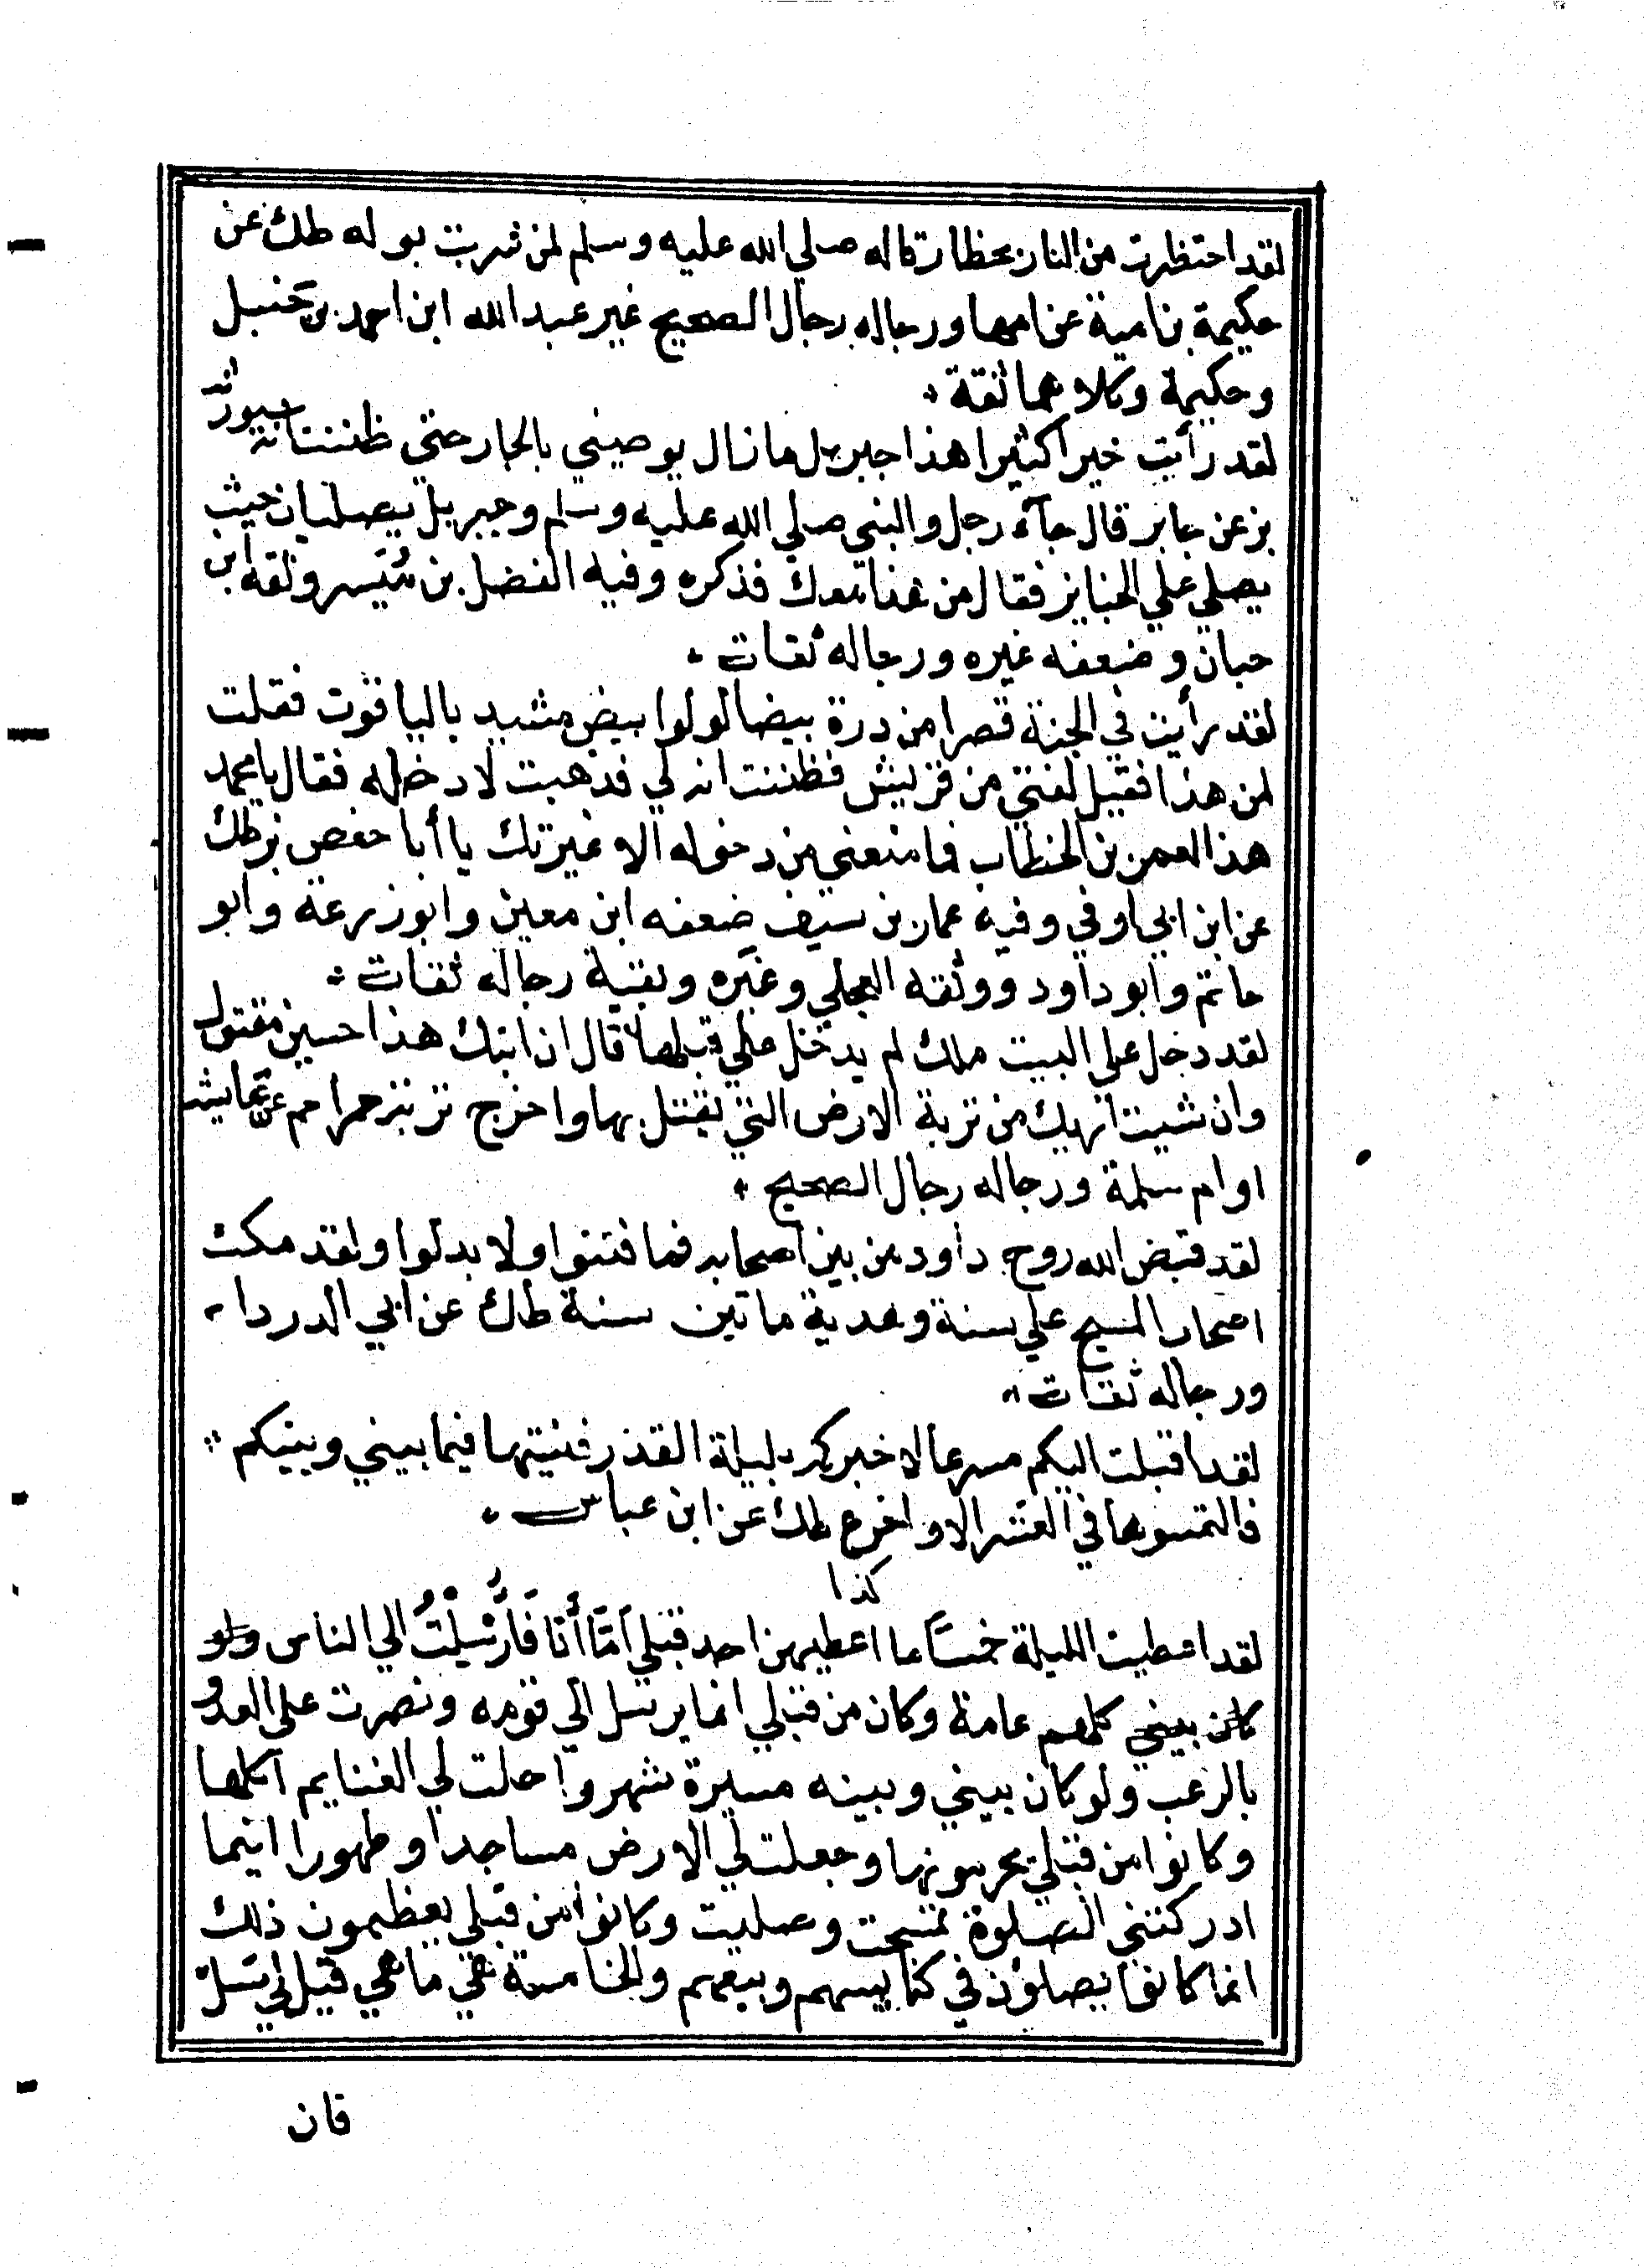 لقد احتظرت من النار بحظار قاله صلي الله عليه وسلم لمن شربت بوله طك عن
حكيمة بن امية عن امها ورجاله رجال الصحيح غير عبد الله ابن احمد بن حنبل
وحكيمة وكلاهما ثقة
لقد رأيت خيرا كثيرا هذا جبريل ما زال يوصيني بالجار حتي ظننت انه سيورثه
بز عن جابر قال جآء رجل والنبي صلي الله عليه وسلم وجبريل يصليان حيث
يصلي علي الجنايز فقال من هذا معك فذكره وفيه الفضل بن مُيَسر وثقه ابن
حبان وضعفه غيره ورجاله ثقات
لقد رأيت في الجنة قصرا من درة بيضا لولوا بيض مشيد بالياقوت فقلت
لمن هذا فقيل لفتي من قريش فظننت انه لي فذهبت لادخله فقال يا محمد
هذا لعمر بن الخطاب فما منعني من دخوله الا غيرتك يا أبا حفص بز طك
عن ابن ابي اوفي وفيه عمار بن سيف ضعفه ابن معين وابو زرعة وابو
حاتم وابو داود ووثقه العجلي وغيره وبقية رجاله ثقات
لقد دخل علي البيت ملك لم يدخل علي قبلها قال ان ابنك هذا حسين مقتول
وان شيت اريك من تربة الارض التي يقتل بها واخرج تربة حمرا حم عن عايشة
او ام سلمة ورجاله رجال الصحيح
لقد قبض الله روح داود من بين اصحابه فما فتنوا ولا بدلوا ولقد مكث
اصحاب المسيح علي سنة وهدية ماتين سنة طك عن ابي الدرداء
ورجاله ثقات
لقد اقبلت اليكم مسرعا لاخبركم بليلة القدر فنيتها فيما بيني وبينكم
فالتمسوها في العشر الاواخر ع طك عن ابن عباس
كذا
لقد اعطيت الليلة خمسًا ما اعطيهن احد قبلي أمّا أنا فأرْسِلْتُ الي الناس ولو
كان بيني كلهم عامة وكان من قبلي انما يرسل الي قومه ونصرت علي العدو
بالرعب ولو كان بيني وبينه مسيرة شهر واحلت لي الغنايم اكلها
وكانوا من قبلي يحرمونها وجعلت لي الارض مساجدا وطهورا اينما
ادركتني الصلوة تمسحت وصليت وكانوا من قبلي يعظمون ذلك
انما كانوا يصلون في كنايسهم وبيعهم والخامسة هي ما هي قيل لي سل
فان